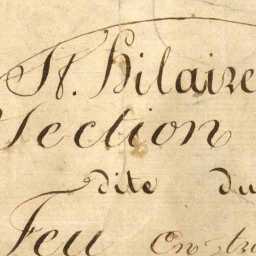 St. Hilaire
Section
dite du
Feu